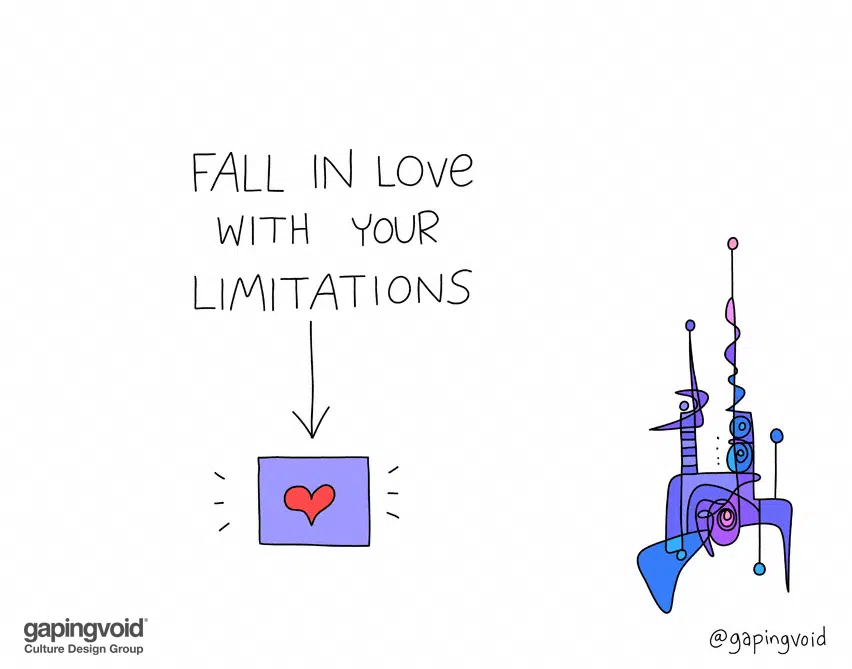 FALL IN LOVe
WITH YOUR
LIMITATIONS
gapingvoid®
Culture Design Group
@gapingvoid